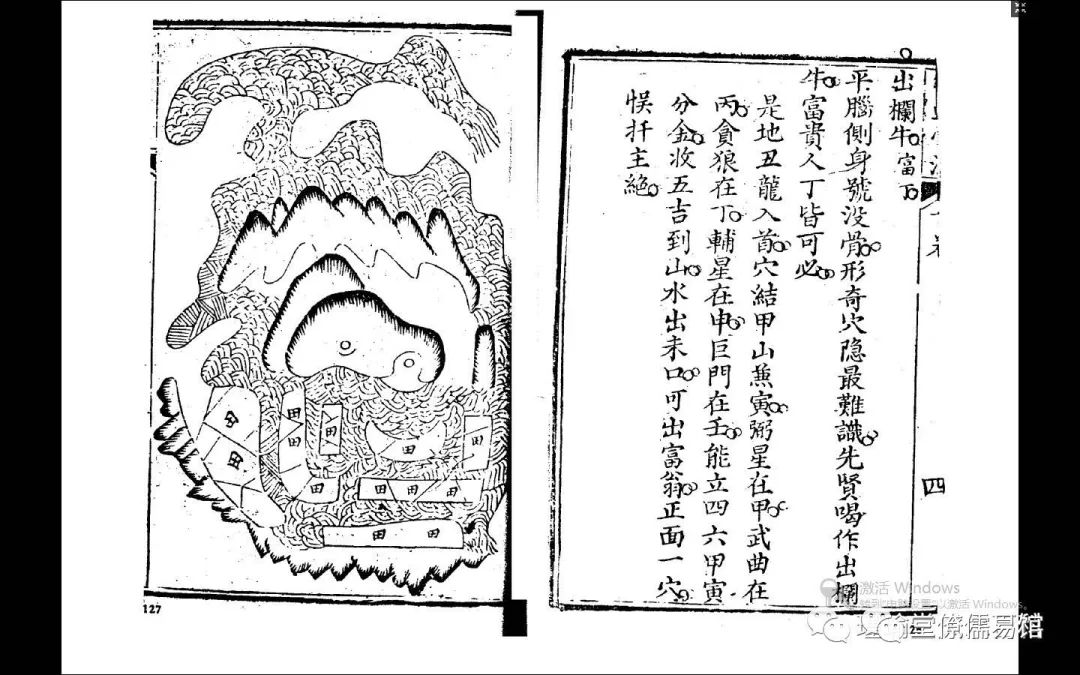 出欄牛富丁
平腦側身號没骨形奇穴隐最難識先賢喝作出欄
牛富貴人丁皆可必
是地丑龍入首穴結甲山兼寅弼星在甲武曲在
丙貪狼在丁輔星在申巨門在壬能立四六甲寅
分金收五吉到山水出未口可出富翁正面一穴
悮扦主絶
四
田
田
田
田
田
田
田
田
田
田
田
田
田
127
激活 Windows
以激活 Windows。
儒易馆